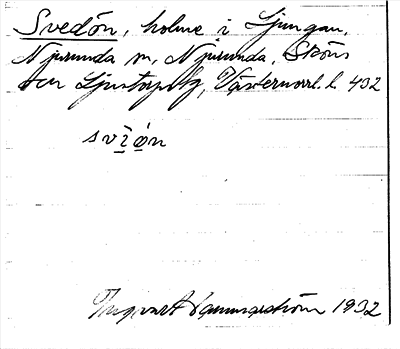 Svedön, holme i Ljungan,
Njurunda sn, Njurunda, Sköns
och Ljustorps tg, Västernorrl. l. 432
svi̲o̲n
Ingvart Hammarström 1932